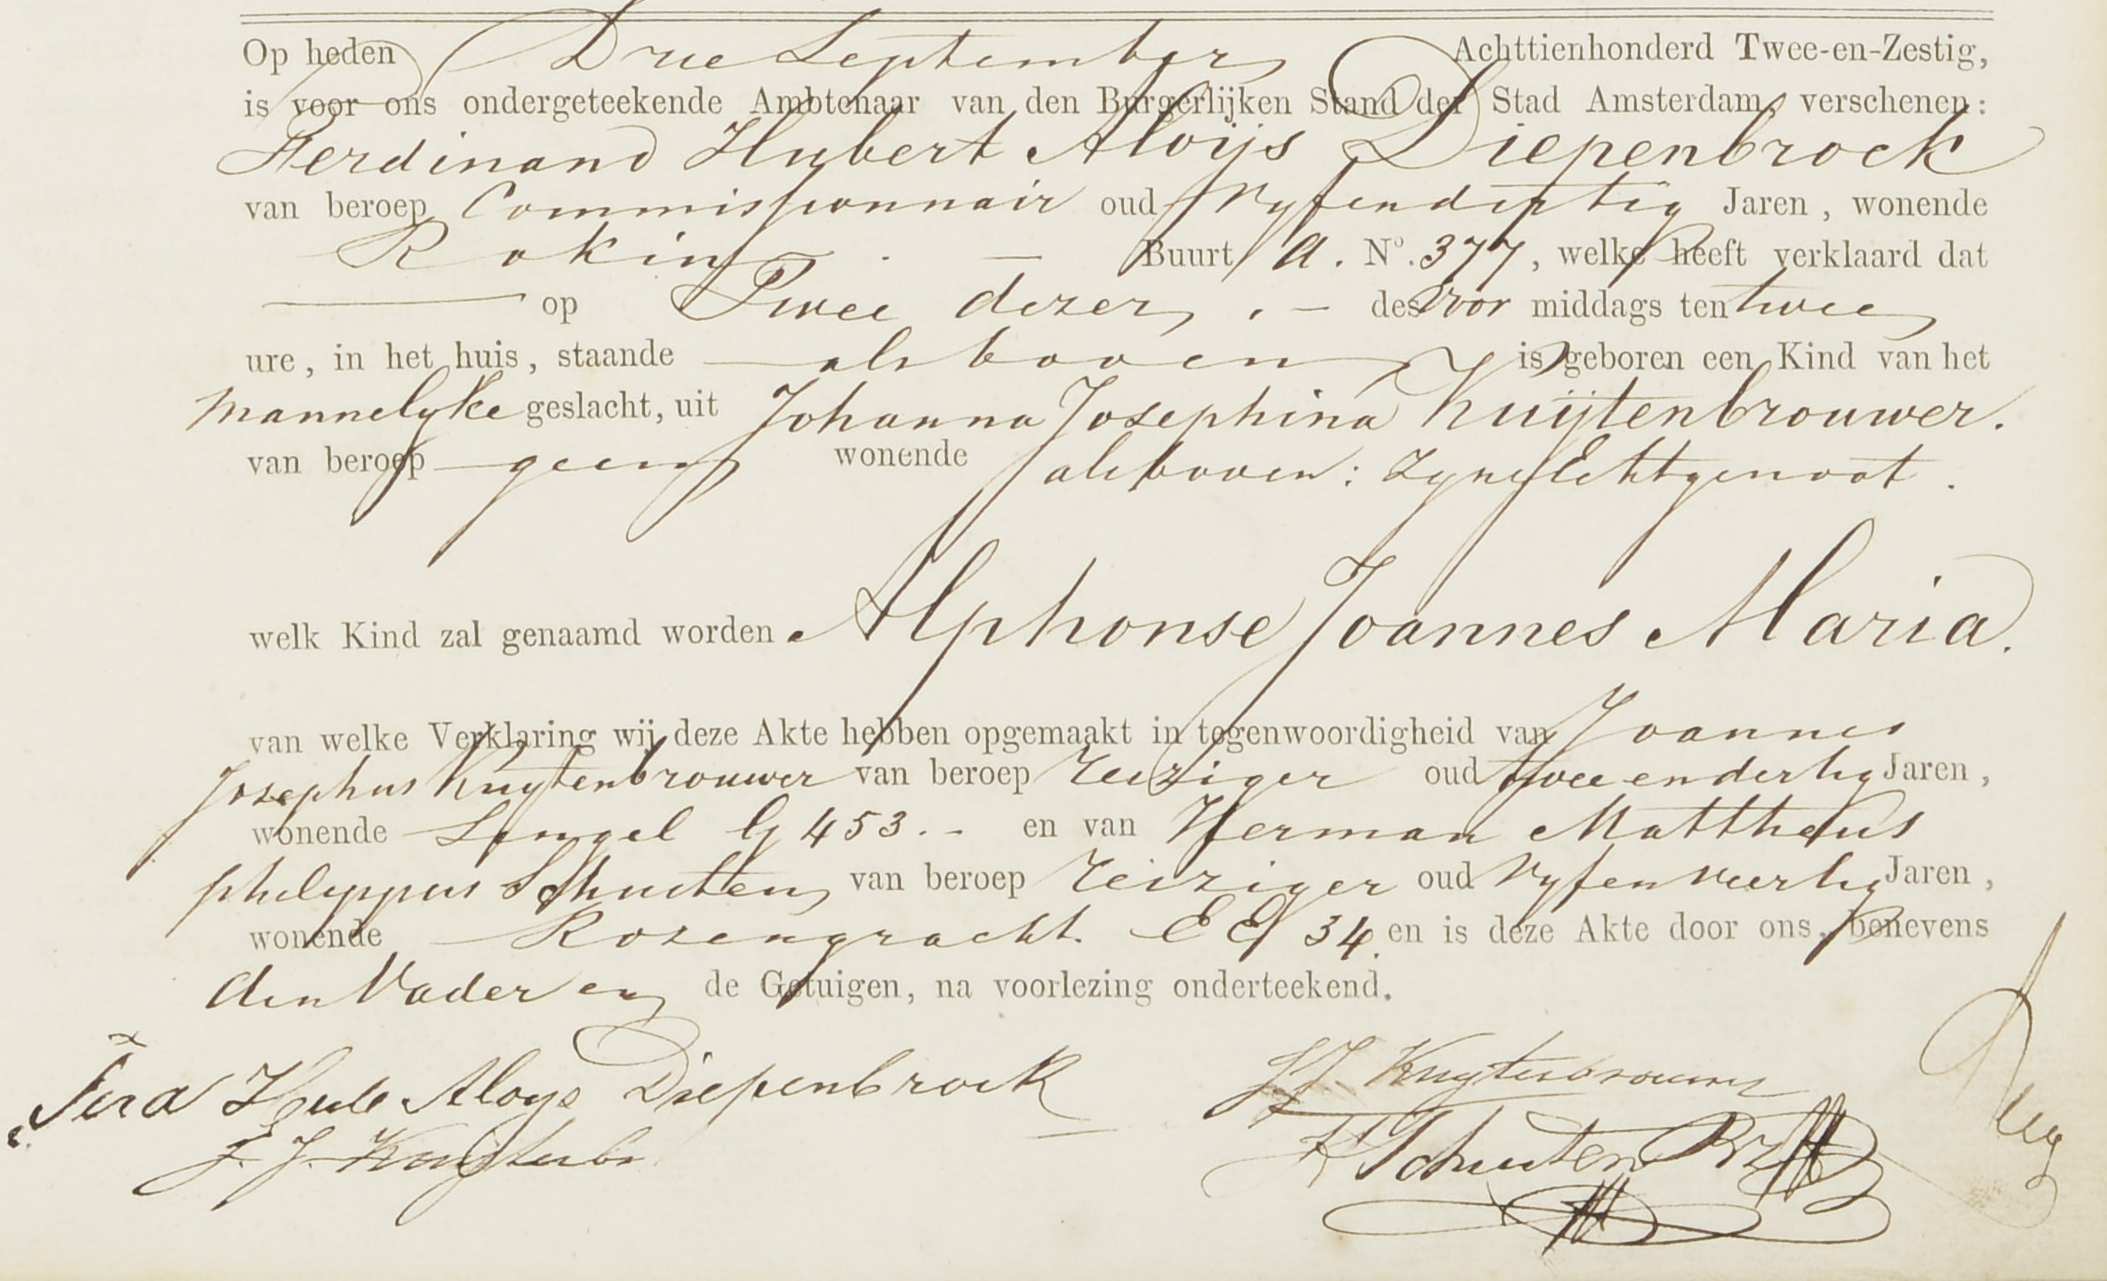 Op heden Drie September Achttienhonderd Twee-en-Zestig,
is voor ons ondergeteekende Ambtenaar van den Burgerlijken Stand der Stad Amsterdam, verschenen:
Ferdinand Hubert Aloijs Diepenbrock
van beroep Commissionnair oud Vyfendertig Jaren, wonende
Rokin Buurt A. Nº. 377, welke heeft verklaard dat
op Twee dezer, des voor middags ten twee
ure, in het huis, staande als boven is geboren een Kind van het
Mannelyke geslacht, uit Johanna Josephina Kuijtenbrouwer.
van beroep geen wonende als boven: zyne Echtgenoot.
welk Kind zal genaamd worden Alphonse Joannes Maria.
van welke Verklaring wij deze Akte hebben opgemaakt in tegenwoordigheid van Joannes
Josephus Kuytenbrouwer van beroep reiziger oud twee en dertig Jaren,
wonende Singel G 453. en van Herman Mattheus
philippus Schuiten van beroep reiziger oud Vyf en Veertig Jaren,
wonende Rozengracht. EE 34. en is deze Akte door ons, benevens
den Vader en de Getuigen, na voorlezing onderteekend.
Ferd Hub Aloys Diepenbrock
J. J. Kuytenbrouwer
J. J. Kuijtenbr
Schuiten